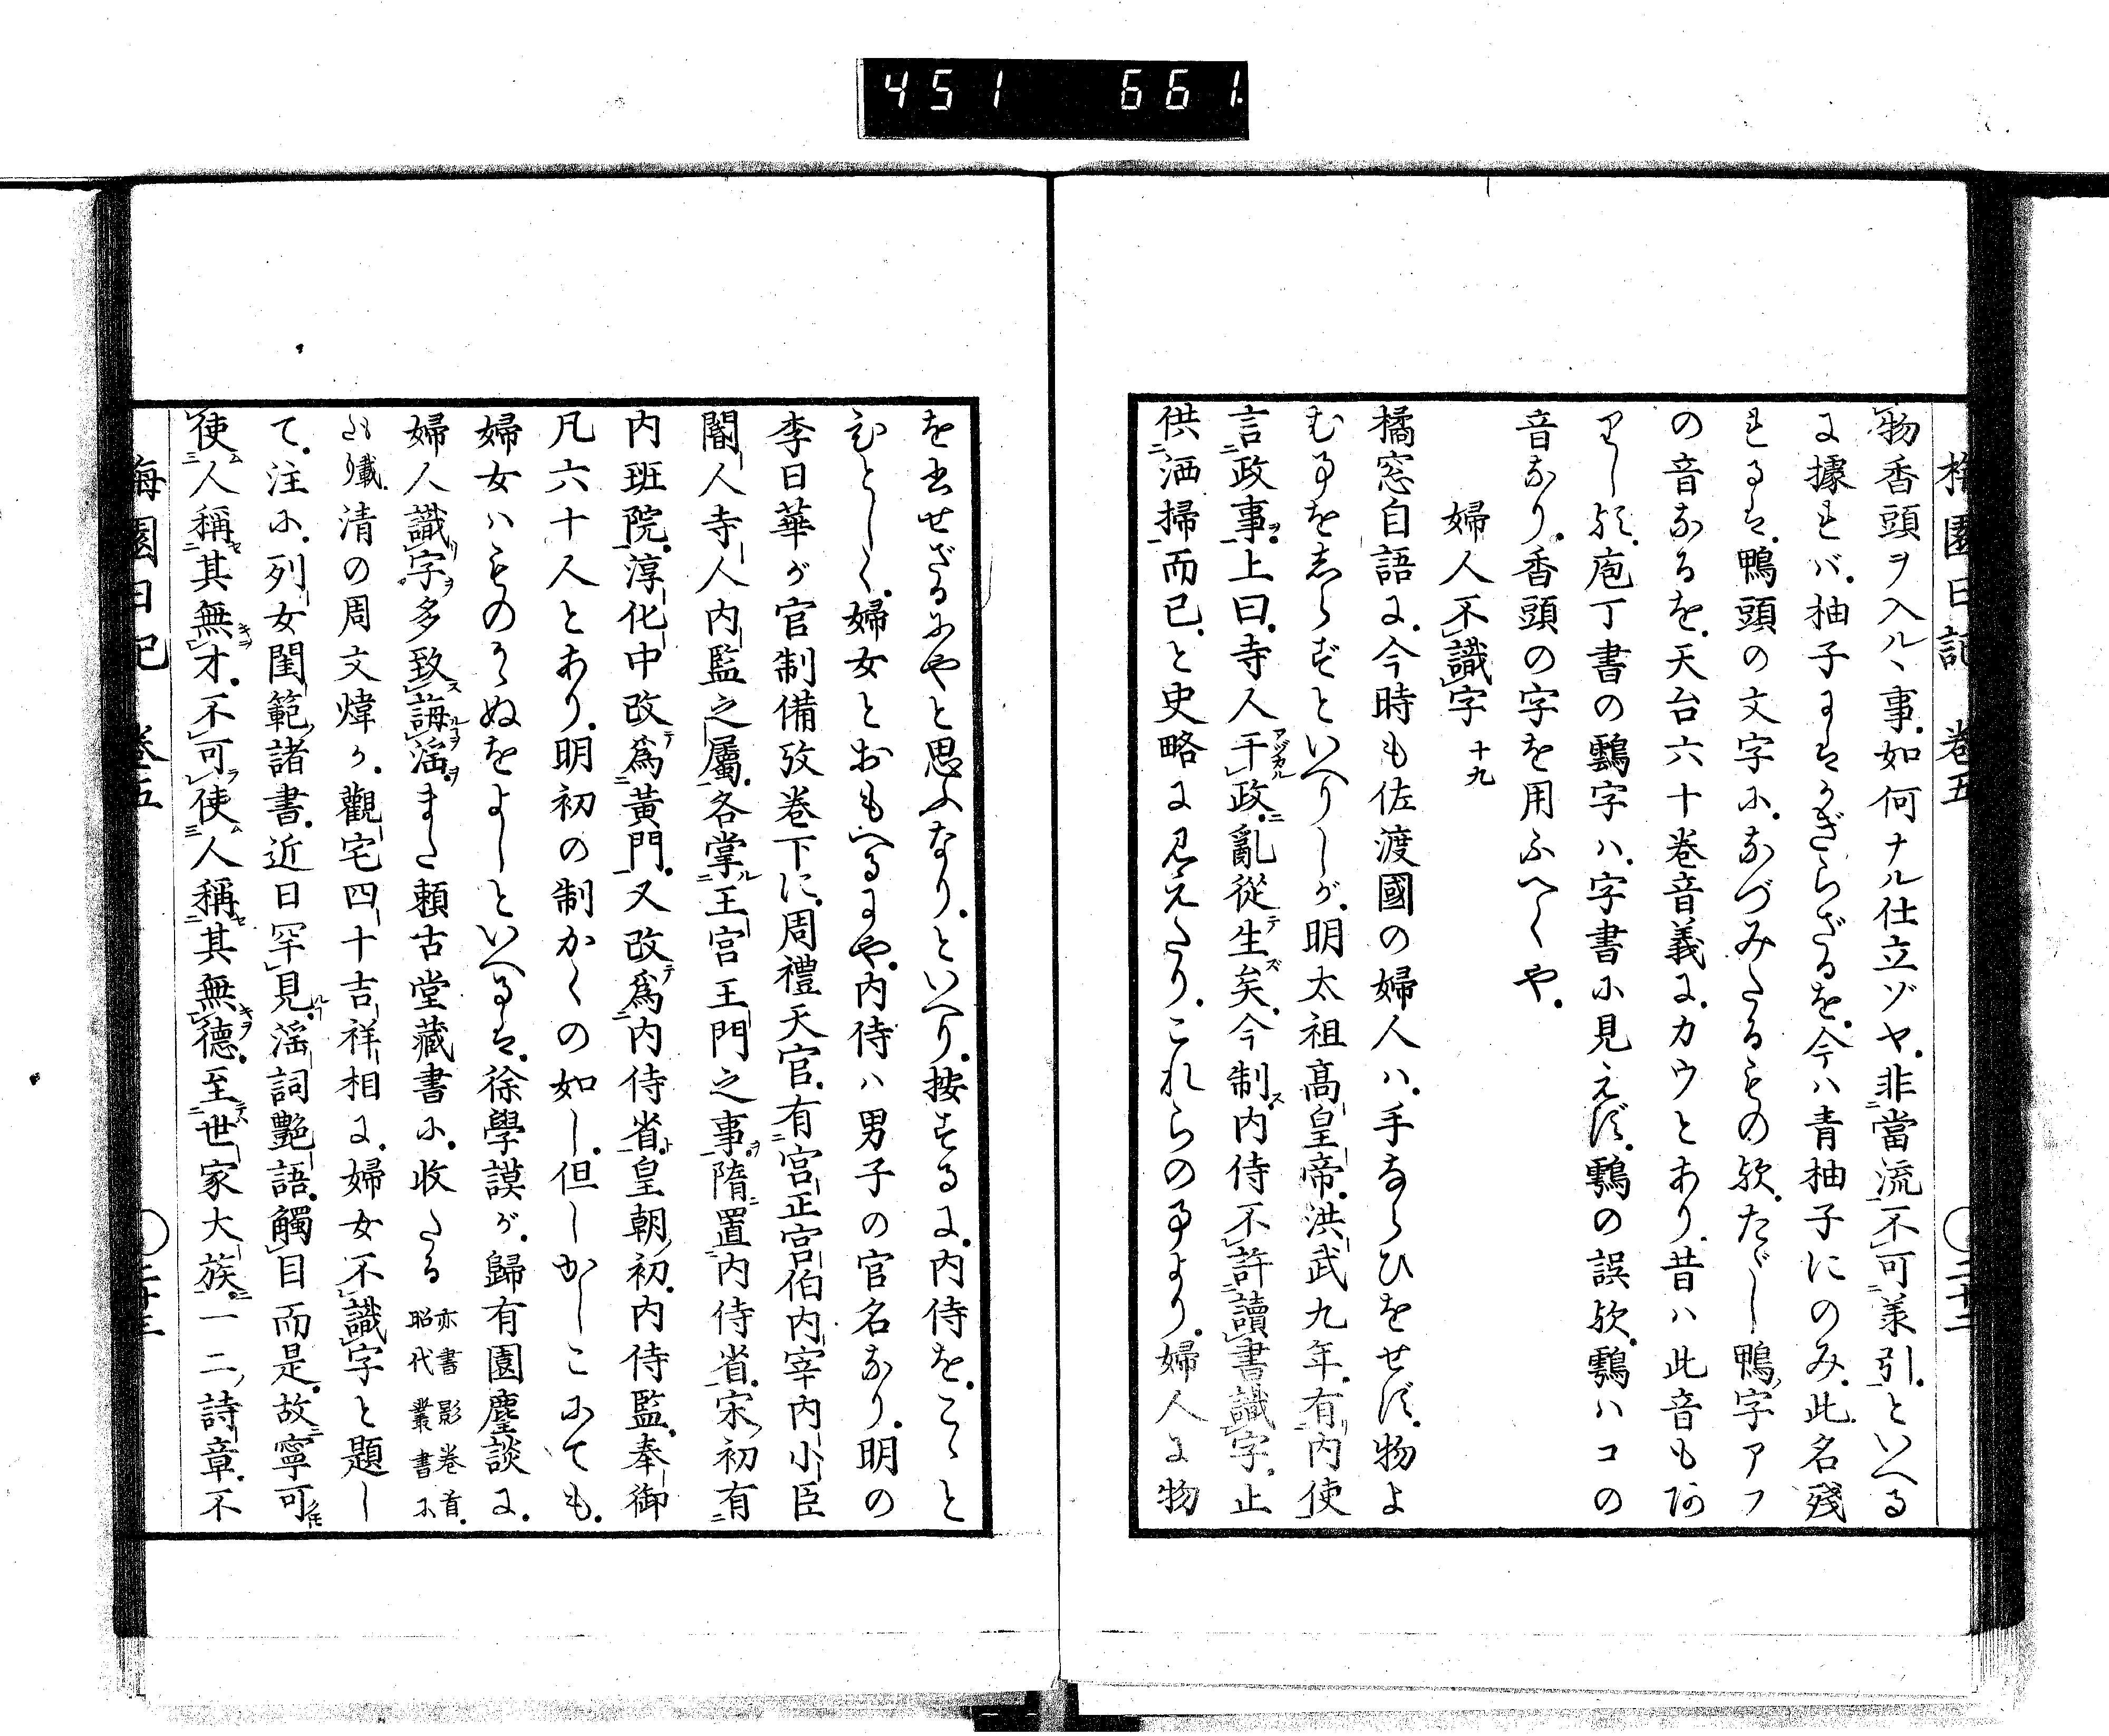 451 661
梅園日記 卷五 ○二十二
物香頭ヲ入ルヽ事。如何ナル仕立ゾヤ。非當流不可兼引。といへる
に據れバ。柚子にはかぎらざるを。今ハ青柚子にのみ。此名殘
れるは。鴨頭の文字に。なづみたるもの歟。たゞし鴨字アフ
の音なるを。天台六十卷音義に。カウとあり。昔ハ此音も阿
りし歟。庖丁書の鸛字ハ。字書に見えず。鸛の誤歟。鸛ハコの
音なり。香頭の字を用ふべくや。
婦人不識字 十九
橘窓自語に。今時も佐渡國の婦人ハ。手ならひをせず。物よ
む事をしらずといへりしが。明太祖高皇帝。洪武九年。有内使
言政事。上曰。寺人干政。亂從生矣。今制内侍不許讀書識字。止
供洒掃而已。と史略に見えたり。これらの事より。婦人に物
をよせざるにやと思ふなり。といへり。按ずるに。内侍を。こゝと
ひとしく。婦女とおもへるにや。内侍ハ男子の官名なり。明の
李日華が官制備攷卷下に。周禮天官。有宮正宮伯内宰内小臣
閽人寺人内監之屬。各掌王宮王門之事。隋置内侍省。宋初有
内班院。淳化中改爲黃門。又改爲内侍省。皇朝初。内侍監。奉御
凡六十人とあり。明初の制かくの如し。但しかしこにても。
婦女ハものかゝぬをよしといへるは。徐學謨が。歸有園麈談に。
婦人識字多致誨滛。また頼古堂藏書に。收たる 亦書影卷首。昭代叢書に
も載たり 清の周文煒が。觀宅四十吉祥相に。婦女不識字と題し
て。注に。列女閨範諸書。近日罕見。滛詞艷語。觸目而是。故寧可
使人稱其無才。不可使人稱其無德。至世家大族。一二詩章。不
梅園日記 卷五 ○二十三